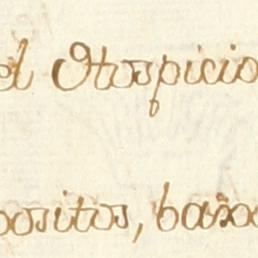 el Otospicio
positos, baxo